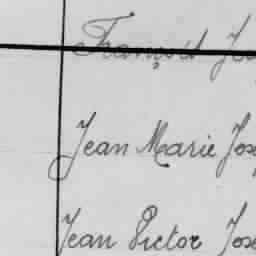 François Jos
Jean Marie Jos
Jean Victor Jose